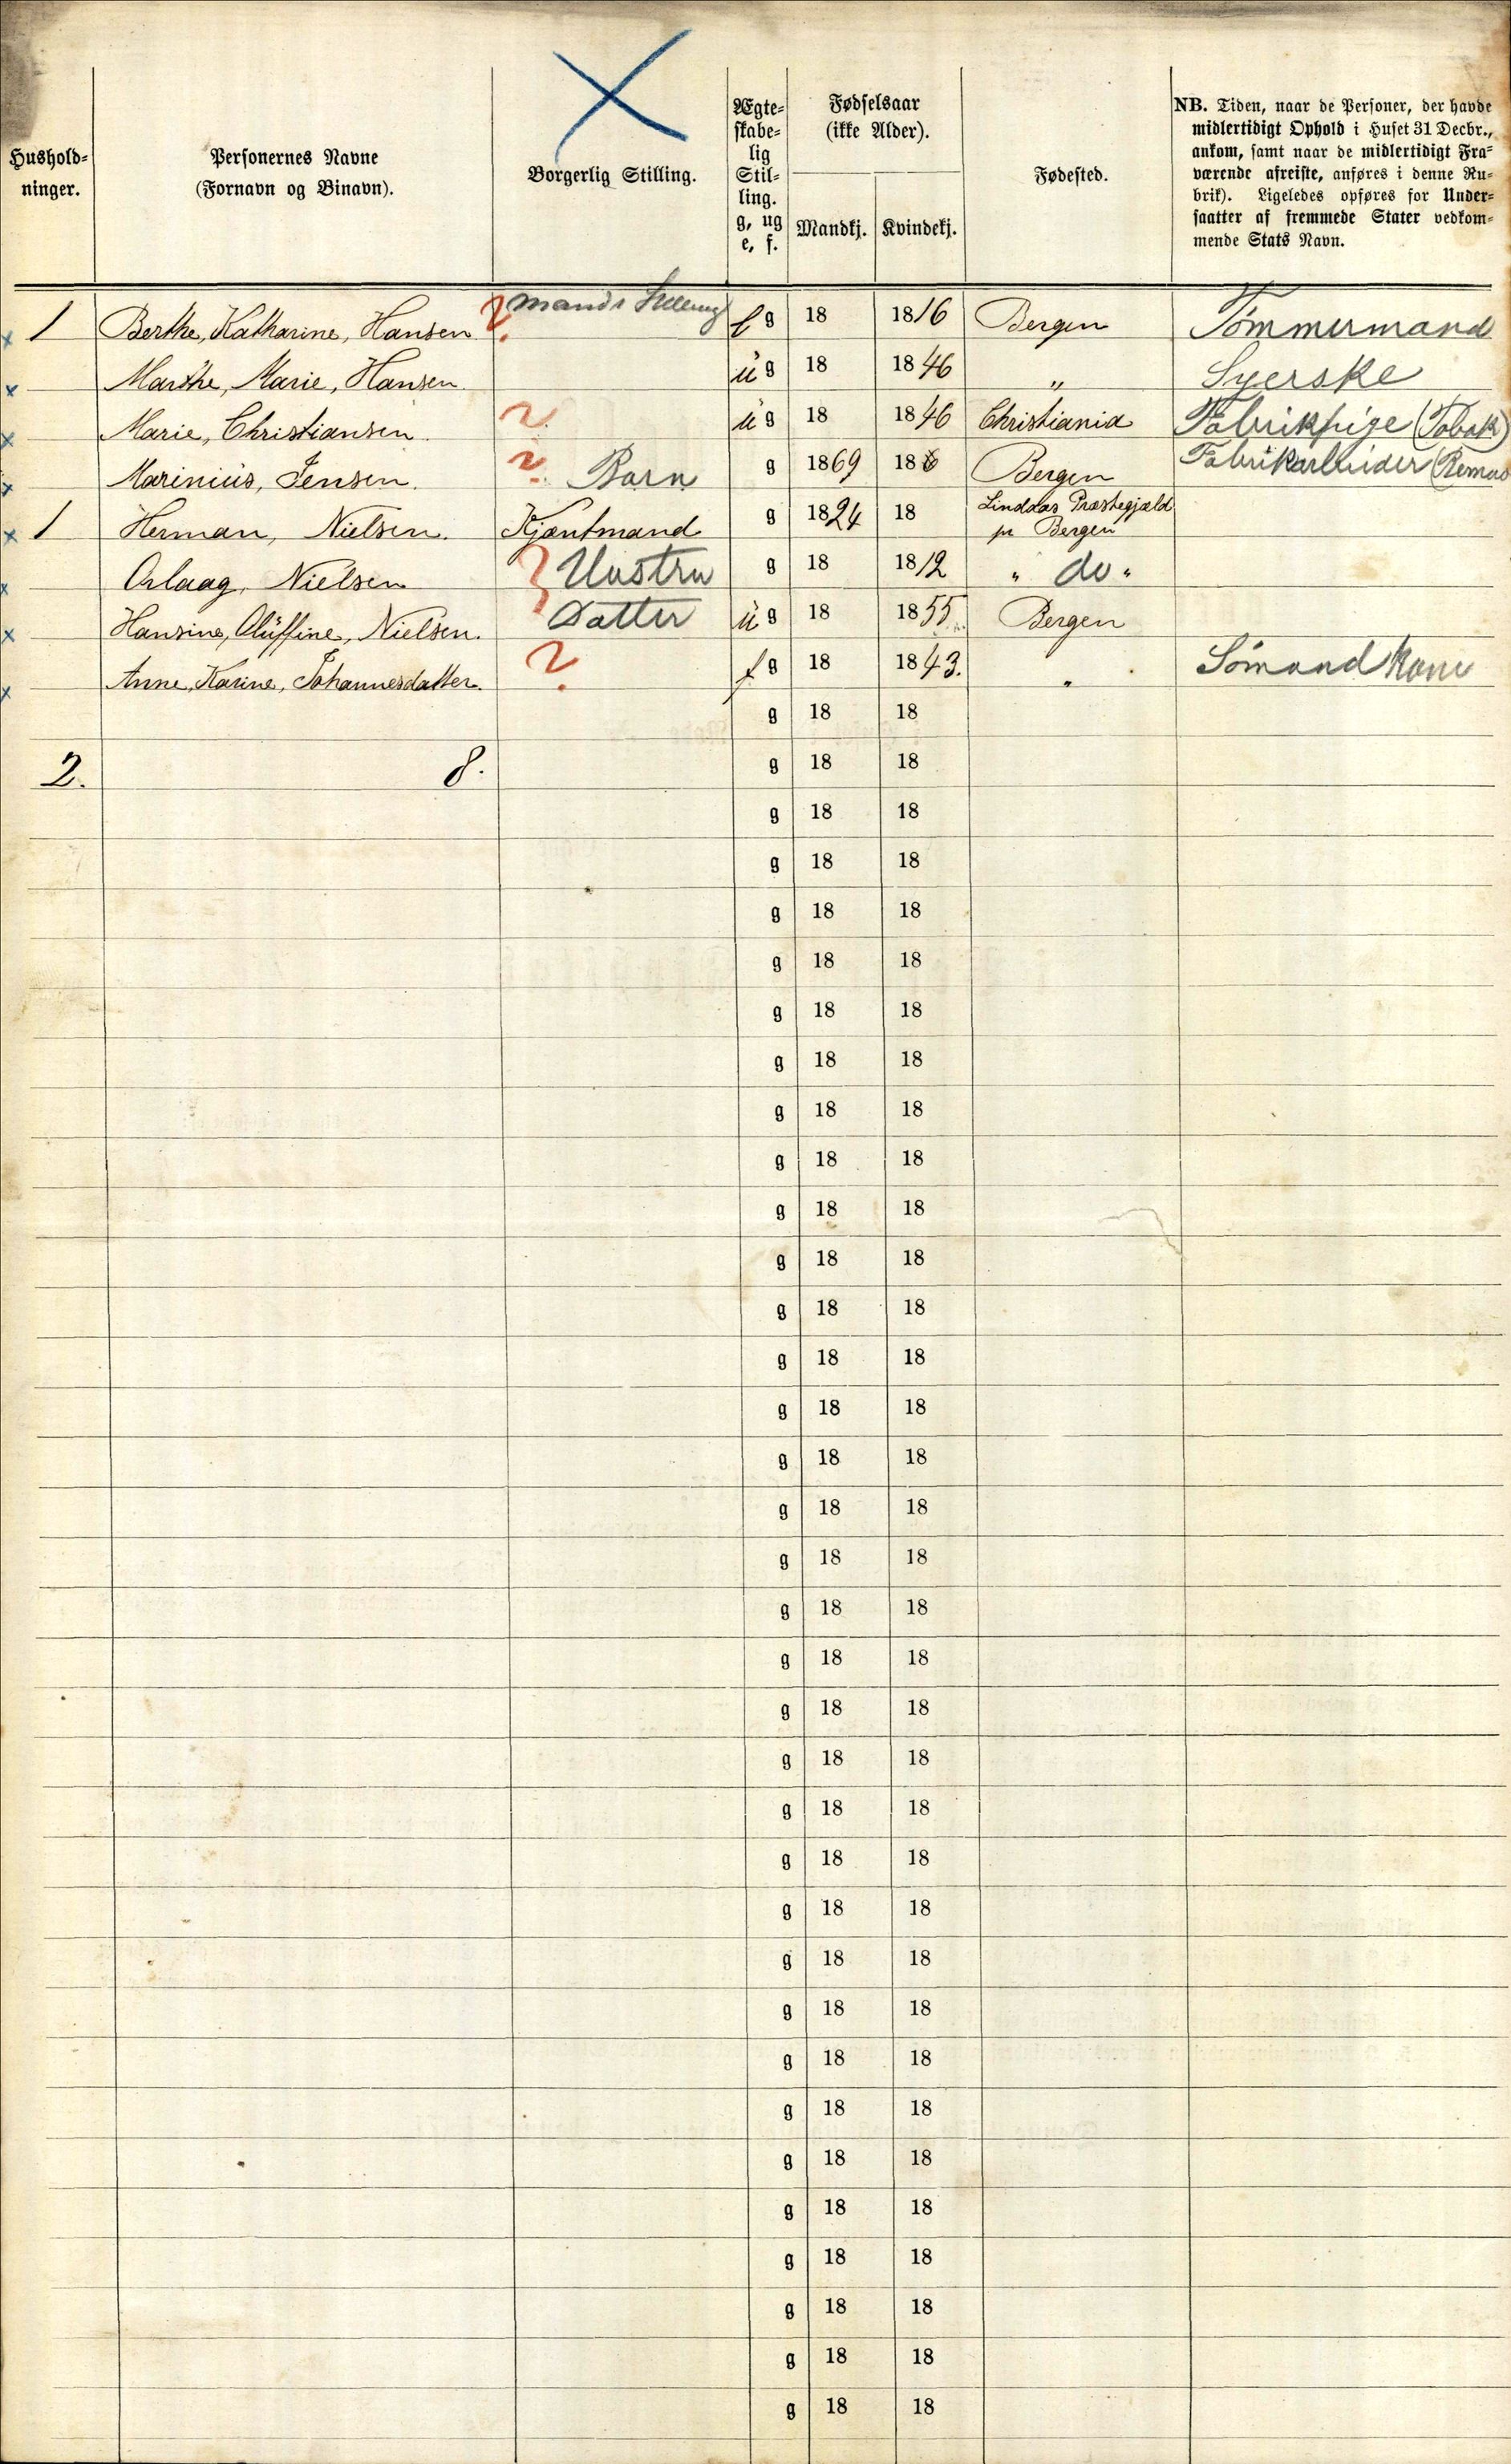 Hushold-
ninger.
Personernes Navne
(Fornavn og Binavn).
Borgerlig Stilling.
Ægte-
skabe-
lig
Stil-
ling.
g, ug
e, f.
Fødselsaar
(ikke Alder).
Mandkj. Kvindekj.
Fødested.
NB. Tiden, naar de Personer, der havde
midlertidigt Ophold i Huset 31 Decbr.,
ankom, samt naar de midlertidigt Fra-
værende afreiste, anføres i denne Ru-
brik). Ligeledes opføres for Under-
saatter af fremmede Stater vedkom-
mende Stats Navn.
x 1 Berthe, Katharine, Hansen ? Mands Stilling g 18 1816 Bergen Tømmermand
x Marthe, Marie, Hansen. u g 18 1846 " Syerske
x Marie, Christiansen. ? u g 18 1846 Christiania Fabrikpige (Tobak)
x Marinius, Jensen. ? Barn g 1869 18 Bergen Fabrikarbeider
x 1 Herman, Nielsen. Kjøntmand g 1824 18 Lindaas Præstegjæld
pr Bergen
x Nielsen Hustru g 18 1812 " do "
x Hansine, Oluffine, Nielsen. Datter u g 18 1855 Bergen
x Anne, Karine, Johannesdatter. ? f g 18 1843. " Sømand kone
g 18 18
2. 8. g 18 18
g 18 18
g 18 18
g 18 18
g 18 18
g 18 18
g 18 18
g 18 18
g 18 18
g 18 18
g 18 18
g 18 18
g 18 18
g 18 18
g 18 18
g 18 18
g 18 18
g 18 18
g 18 18
g 18 18
g 18 18
g 18 18
g 18 18
g 18 18
g 18 18
g 18 18
g 18 18
g 18 18
g 18 18
g 18 18
g 18 18
g 18 18
g 18 18
g 18 18